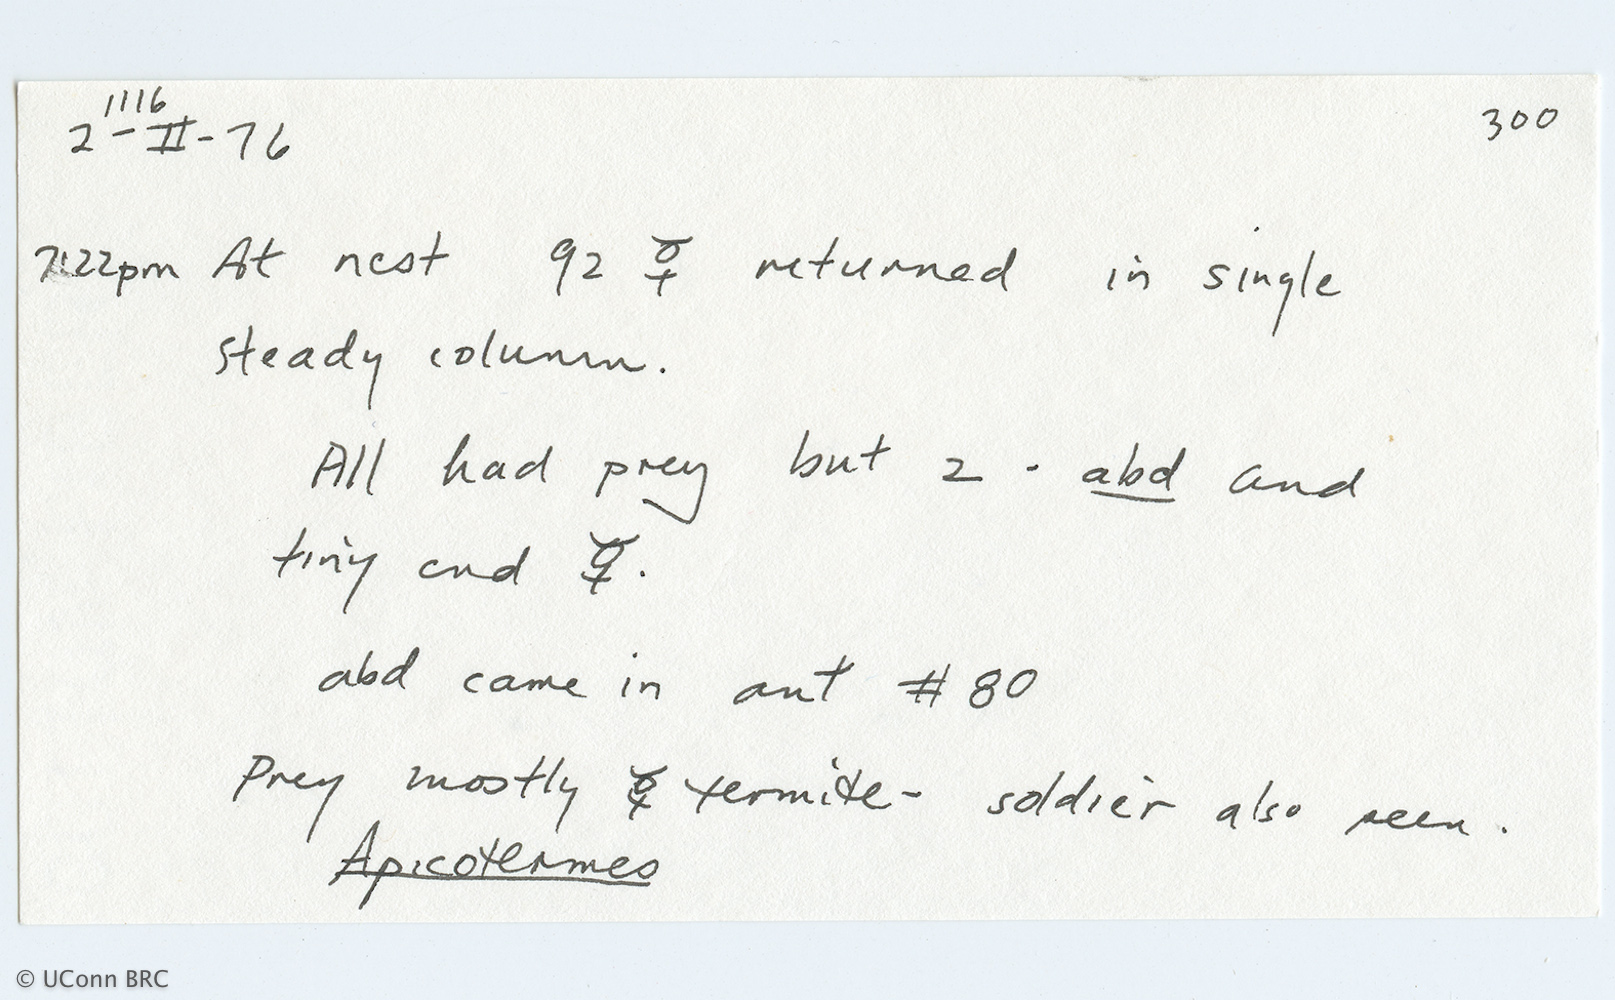 1116
2-II-76
300
7:22pm At nest 92 ☿ returned in single
steady column.
All had prey but 2 - abd and
tiny end ☿.
abd came in ant #80
Prey mostly ☿ termite - soldier also seen.
Apicotermes
© UConn BRC